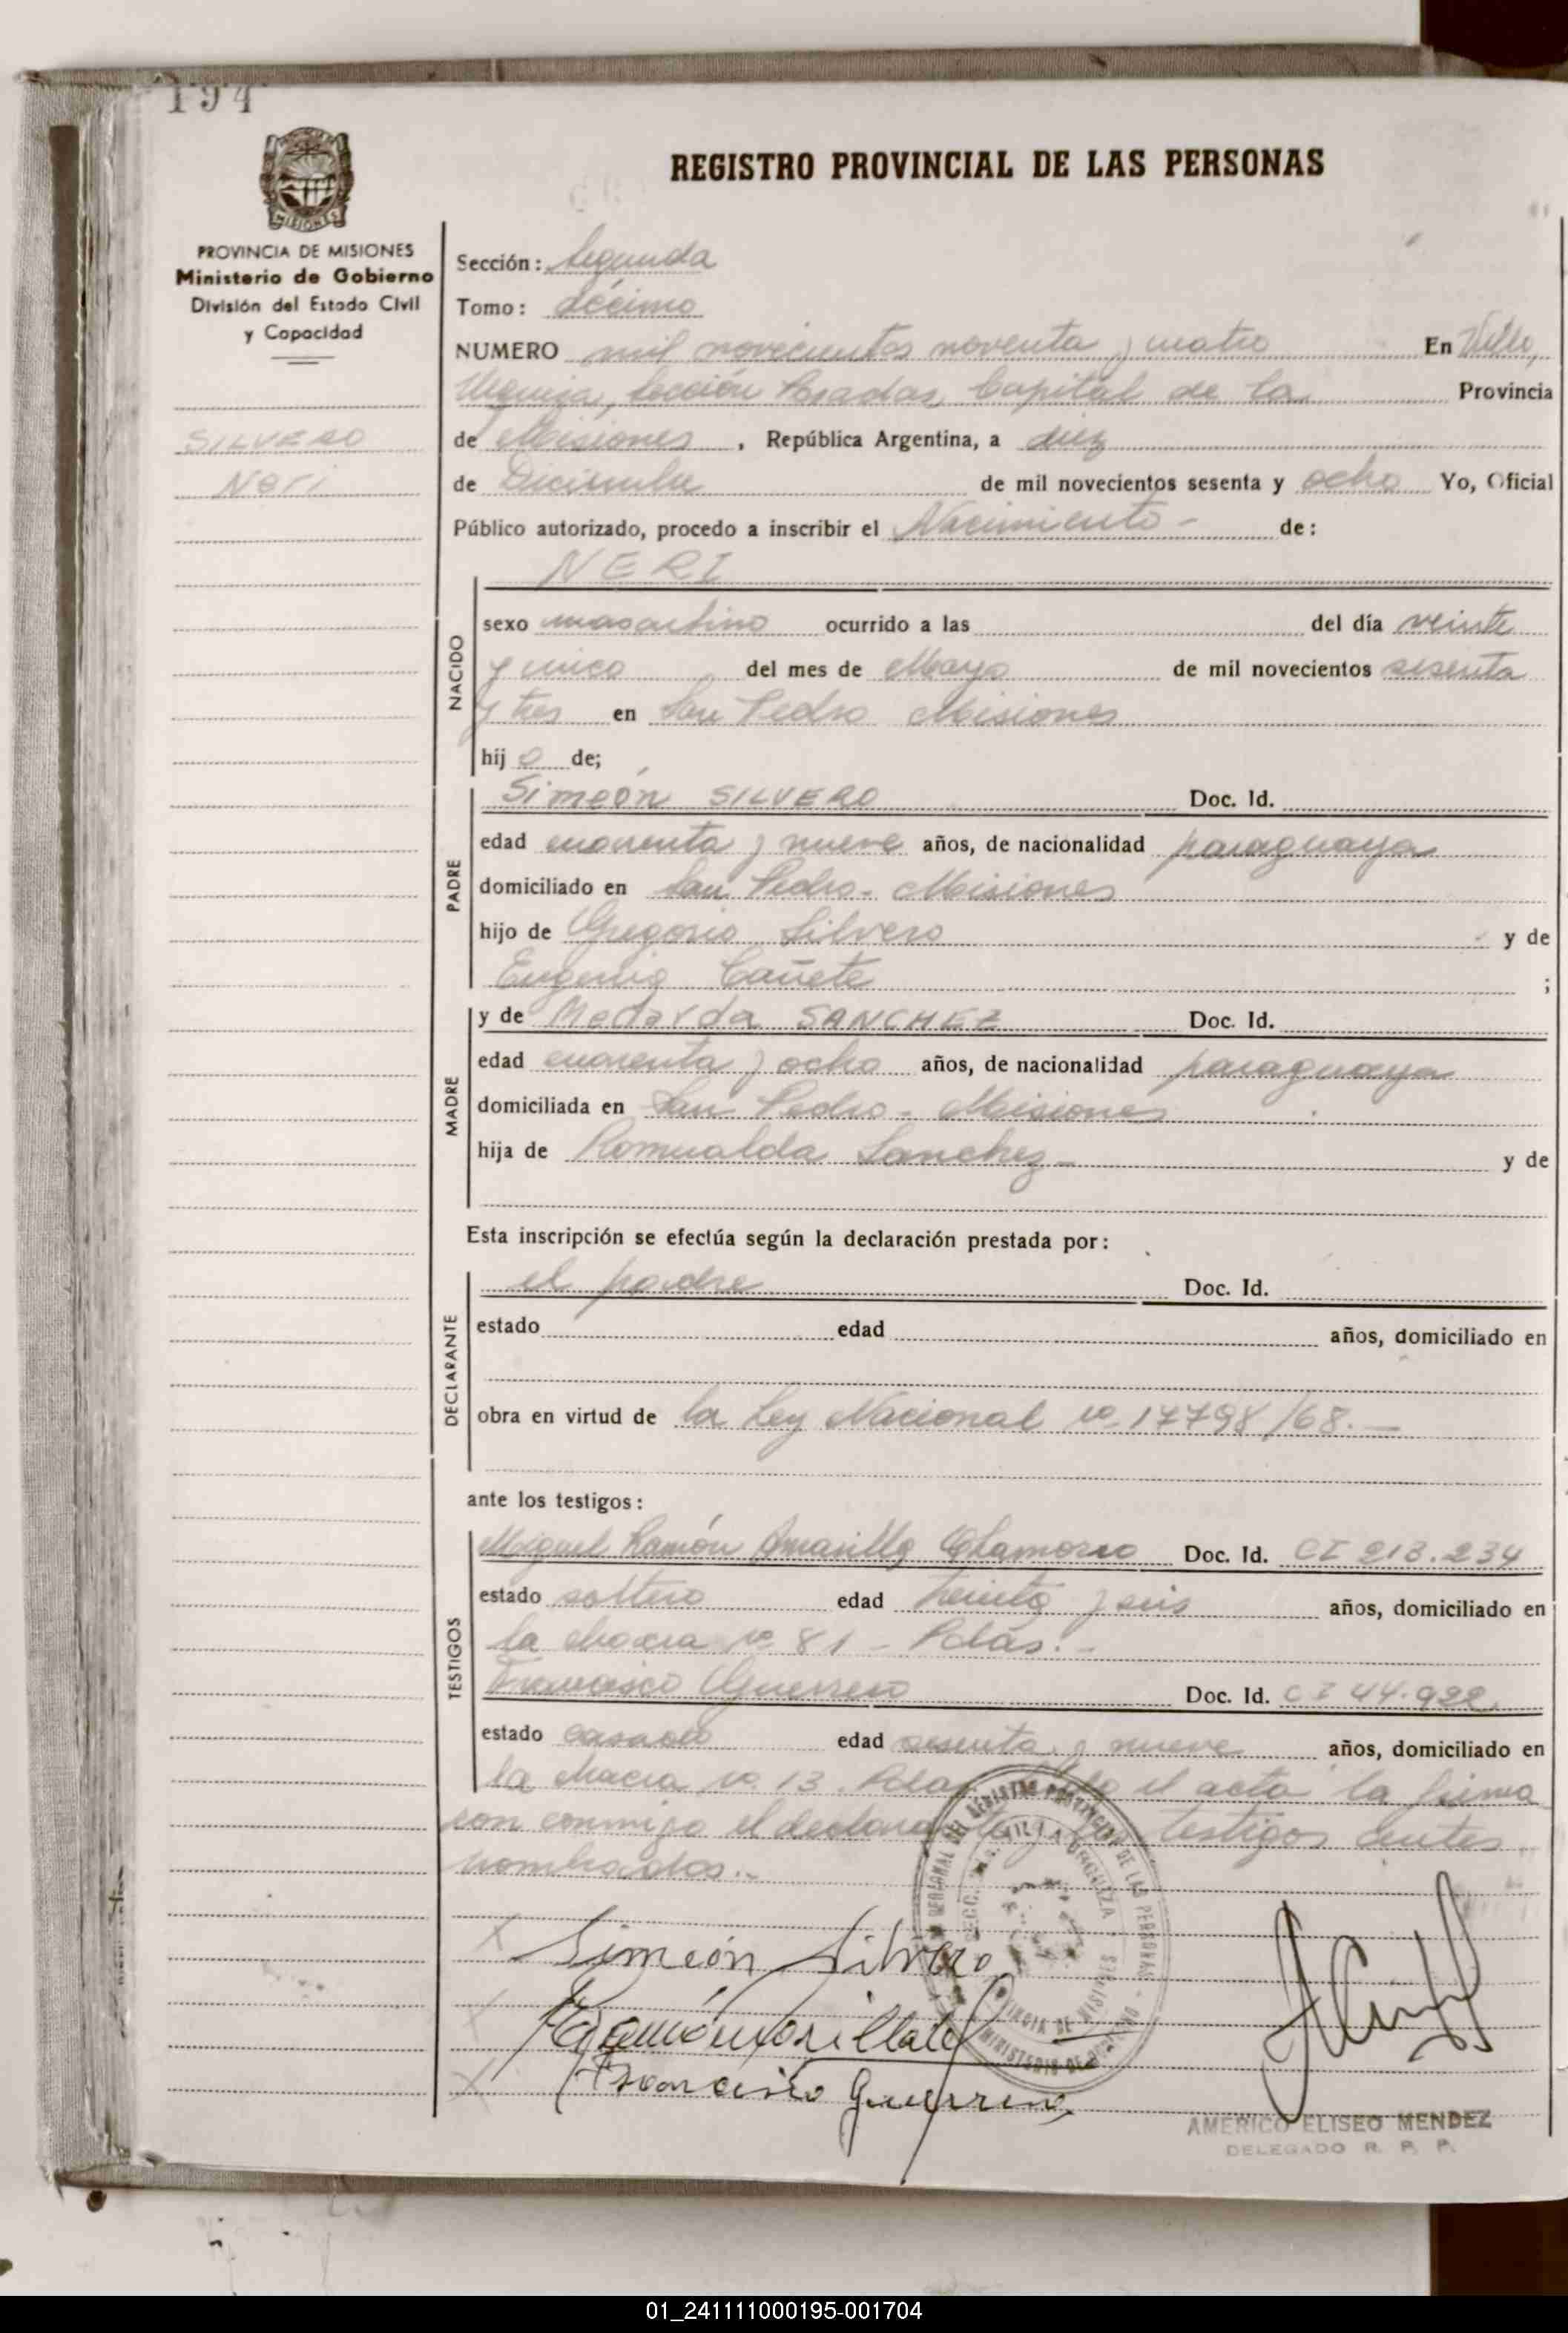 194
REGISTRO PROVINCIAL DE LAS PERSONAS
MISIONES
PROVINCIA DE MISIONES
Ministerio de Gobierno
División del Estado Civil
y Capacidad
SILVERO
Neri
Sección: Segunda
Tomo: décimo
NUMERO mil novecientos noventa y cuatro En Villa
Urquiza, Sección Posadas, Capital de la Provincia
de Misiones, República Argentina, a diez
de Diciembre de mil novecientos sesenta y ocho Yo, Oficial
Público autorizado, procedo a inscribir el Nacimiento - de:
NERI
NACIDO
sexo masculino ocurrido a las del día veinte
y cinco del mes de Mayo de mil novecientos sesenta
y tres en San Pedro Misiones
hij o de;
PADRE
Simeón SILVERO Doc. Id.
edad cuarenta y nueve años, de nacionalidad paraguaya
domiciliado en San Pedro - Misiones
hijo de Gregorio Silvero y de
Eugenia Cañete ;
MADRE
y de Medarda SANCHEZ Doc. Id.
edad cuarenta y ocho años, de nacionalidad paraguaya
domiciliada en San Pedro - Misiones
hija de Romualda Sanchez - y de
Esta inscripción se efectúa según la declaración prestada por:
DECLARANTE
el padre Doc. Id.
estado edad años, domiciliado en
obra en virtud de la Ley Nacional nº 17798/68.-
ante los testigos:
TESTIGOS
Miguel Ramón Amarilla Chamorro Doc. Id. CI 213.234
estado soltero edad treinta y seis años, domiciliado en
la chacra nº 81 - Pdas.-
Francisco Guerrero Doc. Id. CI 44.922
estado casado edad sesenta y nueve años, domiciliado en
la chacra nº 13 Pdas. el acta la firma
con conmigo el declarante testigos antes
nombrados.-
Simeón Silvero
Francisco Guerrero
VILLA URQUIZA
PROVINCIA DE MISIONES
MINISTERIO DE GOBIERNO
AMERICO ELISEO MENDEZ
DELEGADO R. P. P.
01_241111000195-001704